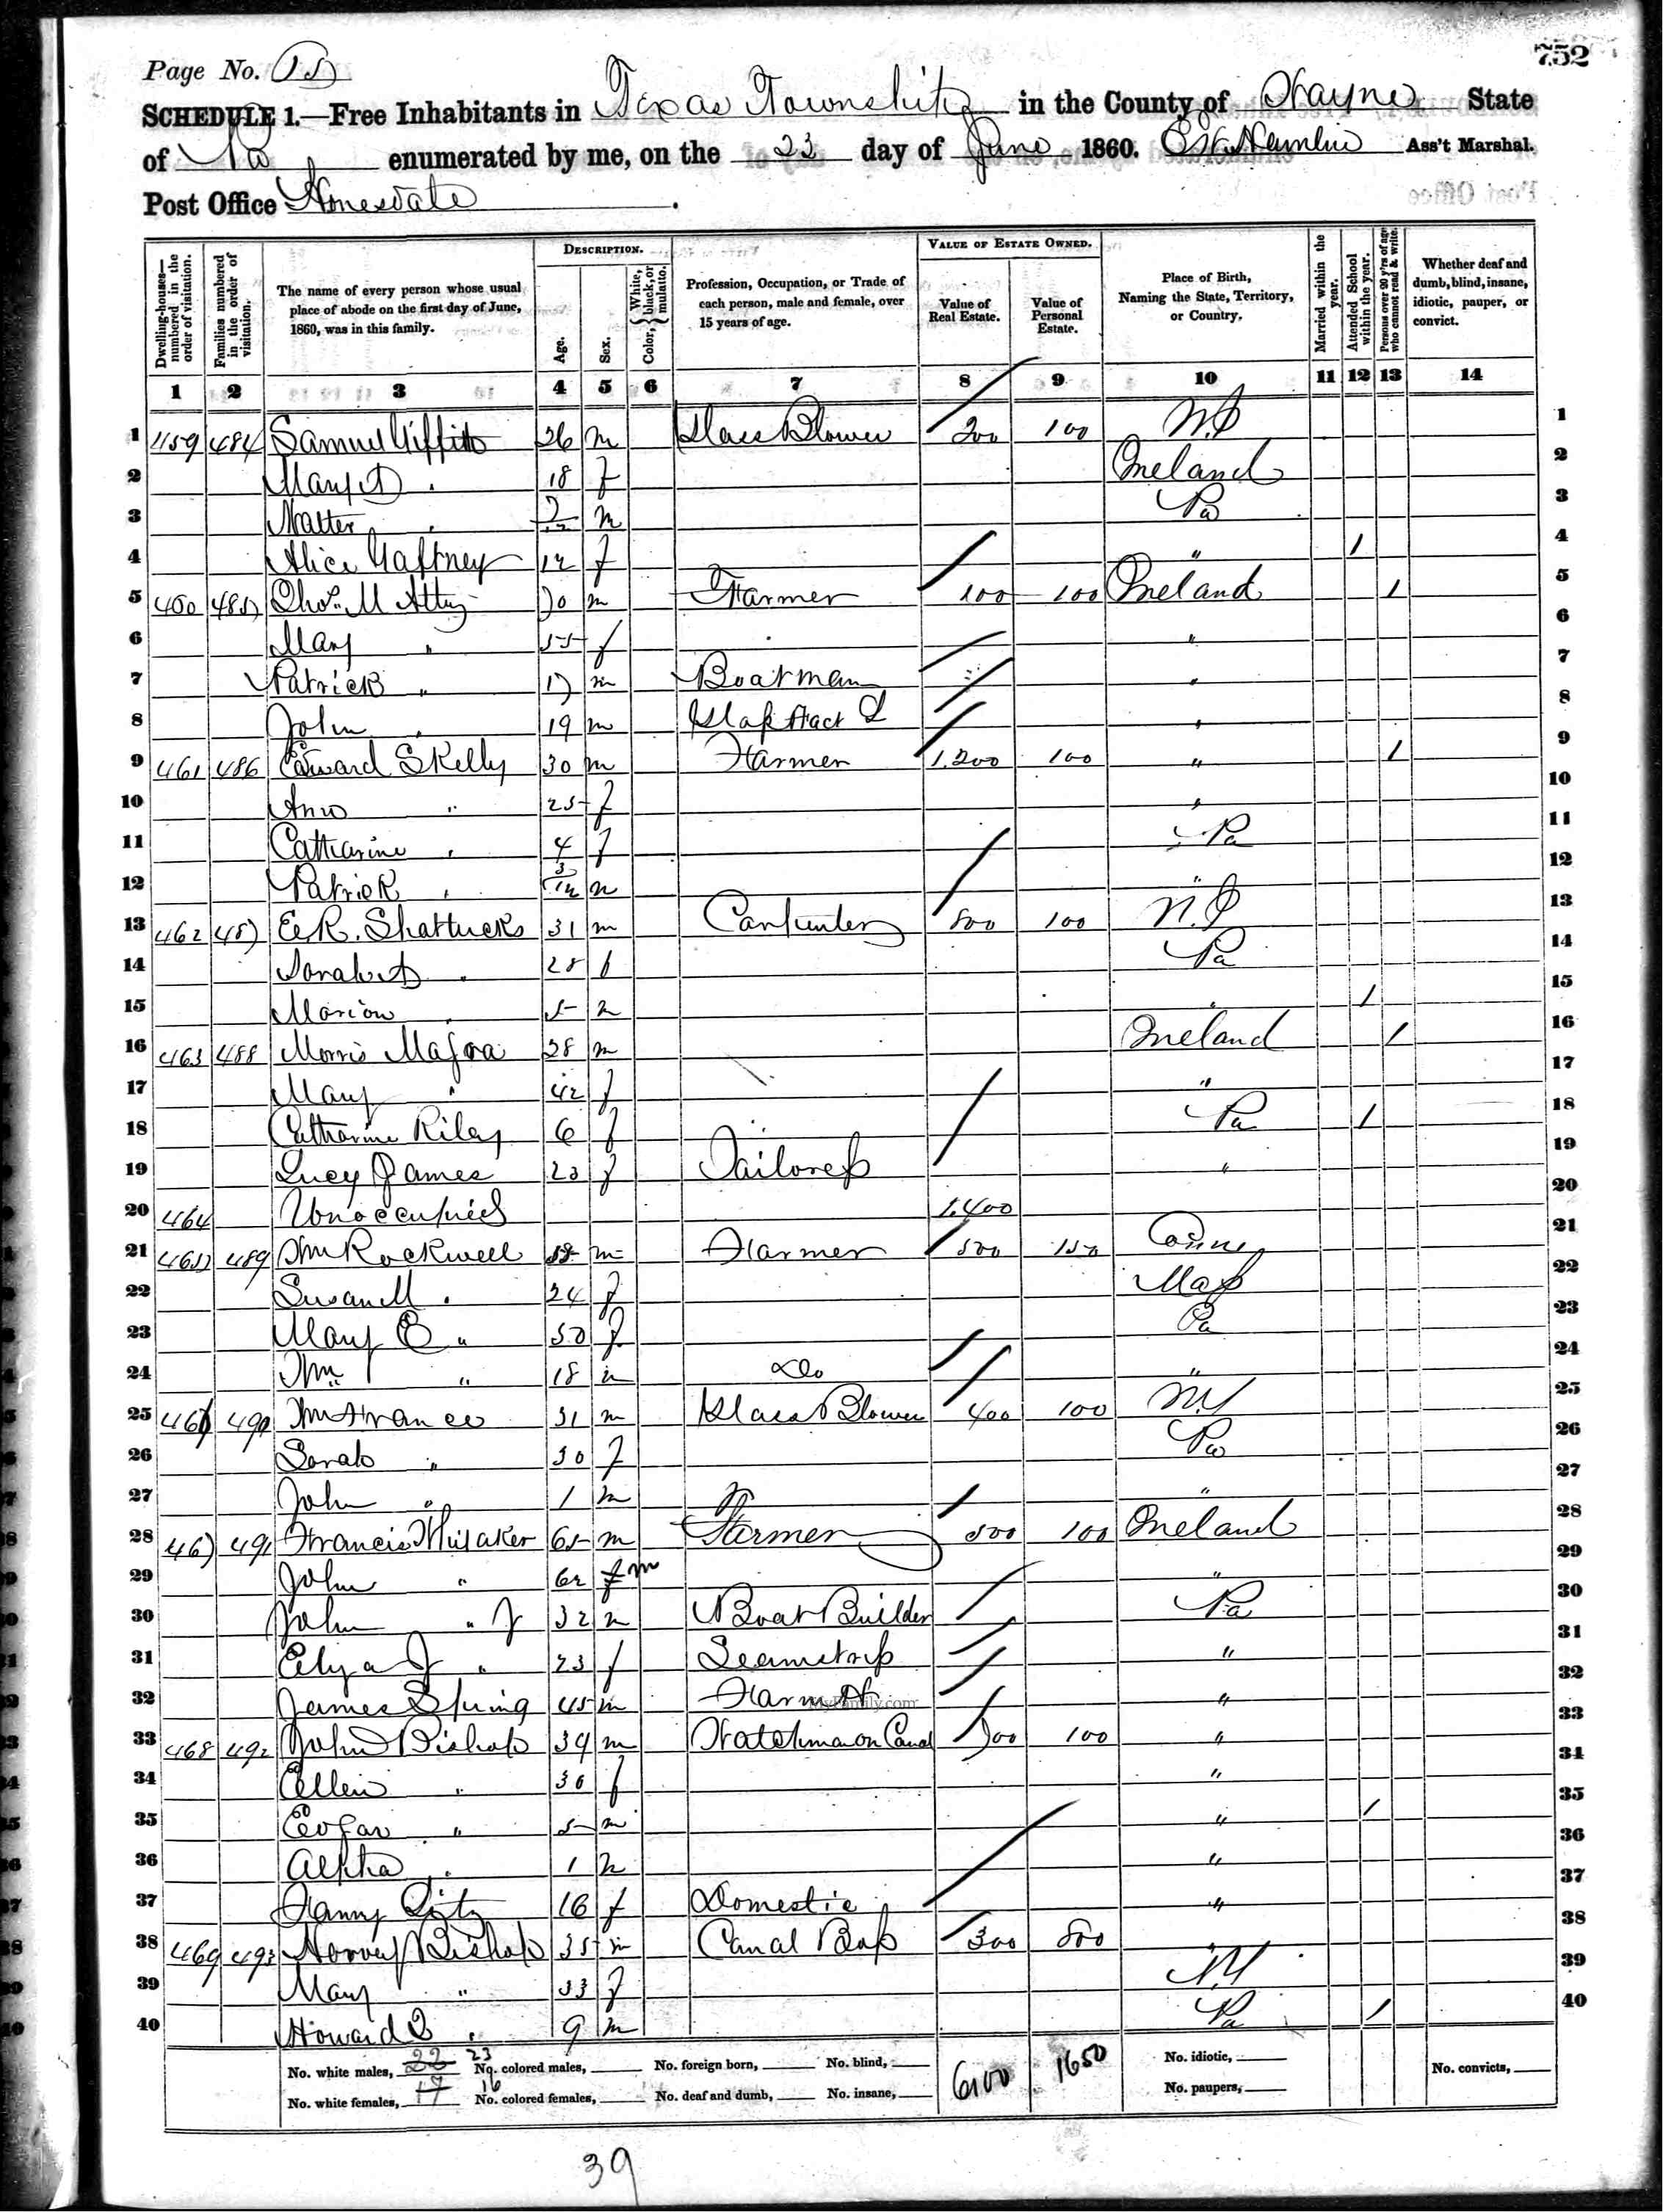 752
Page No. 15
SCHEDULE 1.—Free Inhabitants in Texas Township in the County of Wayne State
of Pa enumerated by me, on the 23 day of June 1860. Ass't Marshal.
Post Office Honesdale
Dwelling-houses—numbered in the order of visitation.
Families numbered in the order of visitation.
The name of every person whose usual place of abode on the first day of June, 1860, was in this family.
DESCRIPTION.
Age.
Sex.
Color, { White, black, or mulatto.
Profession, Occupation, or Trade of each person, male and female, over 15 years of age.
VALUE OF ESTATE OWNED.
Value of Real Estate.
Value of Personal Estate.
Place of Birth, Naming the State, Territory, or Country.
Married within the year.
Attended School within the year.
Persons over 20 y'rs of age who cannot read & write.
Whether deaf and dumb, blind, insane, idiotic, pauper, or convict.
1 2 3 4 5 6 7 8 9 10 11 12 13 14
1 1159 484 Samuel 26 m Glass Blower 200 100 1
2 Mary A " 18 f Ireland 2
3 Walter " m Pa 3
4 Alice Gaffney 12 f " / 4
5 460 485 70 m Farmer 100 100 Ireland / 5
6 Mary " 55 f " 6
7 Patrick " 17 m Boatman " 7
8 John " 19 m " 8
9 461 486 Edward Skelly 30 m Farmer 1,200 100 " / 9
10 Ann " 25 f " 10
11 Catharine " 4 f Pa 11
12 Patrick " 3/12 m " 12
13 462 487 E. R. Shattucks 31 m Carpenter 800 100 13
14 Sarah A " 28 f Pa 14
15 Marion " 5 m " / 15
16 463 488 Morris 28 m Ireland / 16
17 Mary " 42 f " 17
18 Catharine Riley 6 f Pa / 18
19 Lucy James 23 f Tailoress " 19
20 464 Unoccupied 1,400 20
21 465 489 Wm Rockwell m Farmer 500 150 Conn 21
22 Susan M " 24 f Mass 22
23 Mary E " f Pa 23
24 Wm " 18 m Do " 24
25 466 490 Wm France 31 m Glass Blower 400 100 N.Y 25
26 Sarah " 30 f Pa 26
27 John " 1 m " 27
28 467 491 Francis Whitaker 65 m Farmer 500 100 Ireland 28
29 John " 62 m " 29
30 John " J 32 m Boat Builder Pa 30
31 Eliza J " 23 f Seamstress " 31
32 James Spring 45 m MyFamily.com " 32
33 468 492 John Bishop 39 m Watchman on Canal 700 100 " 33
34 Ellen " 36 f " 34
35 Edgar " 5 m " / 35
36 Alpha " 1 m " 36
37 Fanny 16 f Domestic " 37
38 469 493 Harvey Bishop 35 m Canal Boss 300 800 " 38
39 Mary " 33 f N.Y 39
40 Howard " 9 m Pa / 40
No. white males, 22 23 No. colored males, No. foreign born, No. blind, 6100 1650 No. idiotic, No. convicts,
No. white females, 17 16 No. colored females, No. deaf and dumb, No. insane, No. paupers,
39